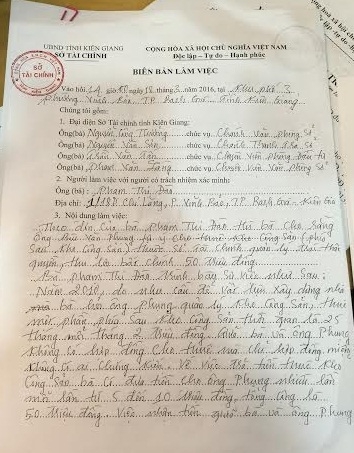 17
UBND TỈNH KIÊN GIANG
SỞ TÀI CHÍNH
CỘNG HÒA XÃ HỘI CHỦ NGHĨA VIỆT NAM
Độc lập – Tự do – Hạnh phúc
SỞ
TÀI CHÍNH
BIÊN BẢN LÀM VIỆC
Vào hồi giờ ngày 18 tháng 3 năm 2016, tại Khu phố 3
phường Vĩnh Bảo, TP. Rạch Giá, tỉnh Kiên Giang
Chúng tôi gồm:
1. Đại diện Sở Tài chính tỉnh Kiên Giang:
Ông(bà) Nguyễn chức vụ Chánh Văn phòng Sở
Ông(bà) Nguyễn Văn chức vụ Chánh Thanh tra Sở
Ông(bà) Trần Văn chức vụ Chuyên viên phòng
Ông(bà) Phan Văn chức vụ Chuyên viên Văn phòng Sở
2. Người làm việc với người có trách nhiệm xác minh:
Ông (bà) : Phạm Thị Đào
Địa chỉ: Cù Là, P. Vĩnh Bảo, TP. Rạch Giá, Kiên Giang
3. Nội dung làm việc:
Theo đơn của bà Phạm Thị Đào thì bà cho rằng
ông Phụng kho Công Sản (phía
sau kho Công Sản) thuộc Sở Tài chính quản lý
quyền, thu lợi bất chính 50 triệu đồng.
Bà Phạm Thị Đào trình bày sự việc như sau:
Năm 2010, do nhu cầu để vật liệu xây dựng nhà
bà hỏi ông Phụng quản lý kho Công Sản, thuê
một phần phía sau kho Công Sản thời gian là 25
tháng mỗi tháng 2 triệu đồng. Giữa bà và ông Phụng
không có hợp đồng cho thuê mà chỉ hợp đồng miệng
không có ai chứng kiến. Về việc trả tiền thuê kho
Công Sản bà có đưa tiền cho ông Phụng nhiều lần
mỗi lần từ 5 đến 10 triệu đồng, tổng cộng là
50 triệu đồng. Việc nhận tiền giữa bà và ông Phụng